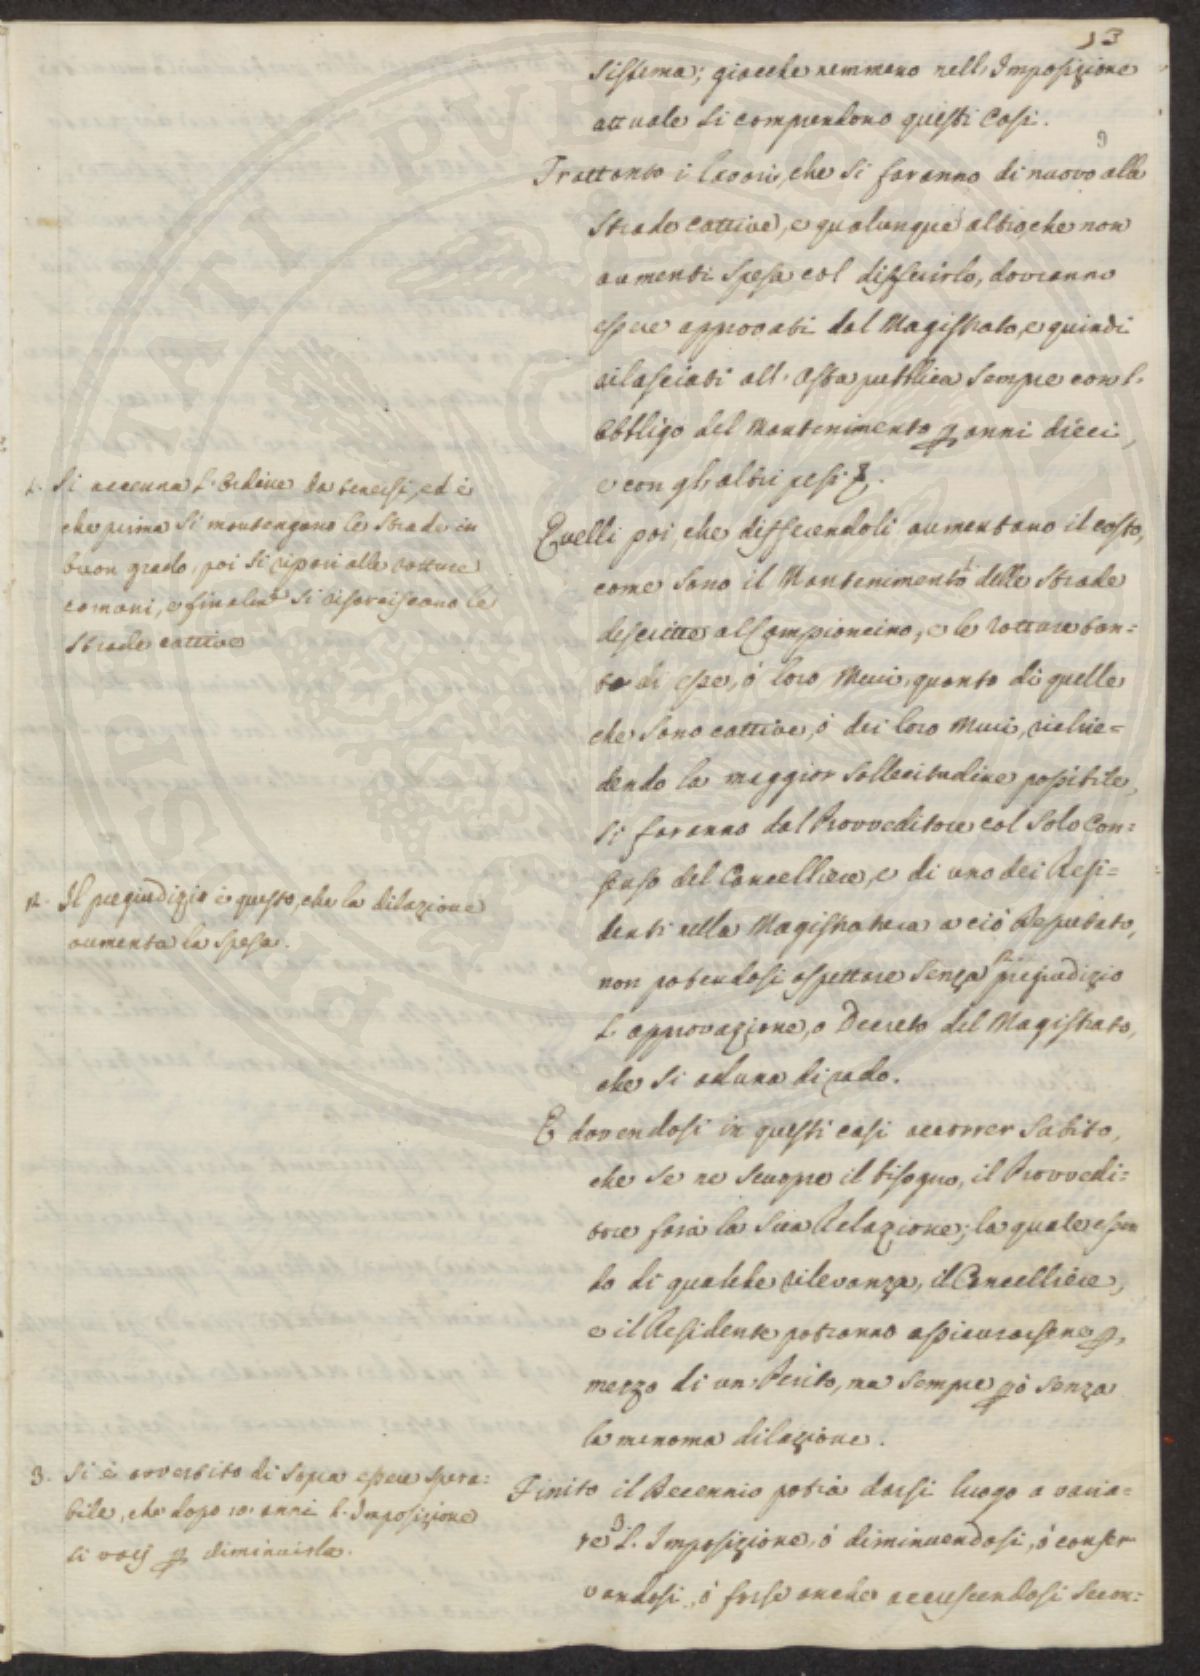 13
sistema; giacche nemmeno nell'Imposizione
attuale si comprendono questi Casi.
Trattanto i lavori, che si faranno di nuovo alle
Strade cattive, e qualunque altro, che non
aumenti spesa col differirlo, dovranno
essere approvati dal Magistrato, e quindi
rilasciati all'Asta pubblica sempre con l'
obbligo del Mantenimento p anni dieci,
e con gli altri pesi &.
Quelli poi, che differendoli aumentano il costo,
come sono il Mantenimento delle Strade
descritte al Campioncino, e le rotture tan=
to di esse, ó loro Muri, quanto di quelle
che sono cattive, ó dei loro Muri, richie=
dendo la maggior sollecitudine possibile,
si faranno dal Provveditore col solo Con=
senso del Cancelliere, e di uno dei Resi=
denti nella Magistratura a ció Deputato,
non potendosi aspettare senza 2. pregiudizio
L'approvazione, o Decreto del Magistrato,
che si aduna di rado.
E dovendosi in questi casi accorrer subito,
che se ne scuopre il bisogno, il Provvedi=
tore fará la sua Relazione; la quale essen
do di qualche rilevanza, il Cancelliere,
e il Residente potranno assicurarsene p
mezzo di un Perito, ma sempre pó senza
la menoma dilazione.
Finito il Decennio potrà darsi luogo a varia=
re 3. L'Imposizione, ó diminuendosi, ó conser
vandosi, ó forse anche accrescendosi secon=
1. Si accenna l'ordine da tenersi, ed è
che prima si mantengano le strade in
buon grado, poi si ripari alle rotture
comuni, e finalmte si risarciscano le
strade cattive
2. Il pregiudizio è questo, che la dilazione
aumenta la spesa.
3. Si è avvertito di sopra essere spera=
bile, che dopo 10. anni l'Imposizione
si varj p diminuirla.
SENATUS PUBLICA PISIS